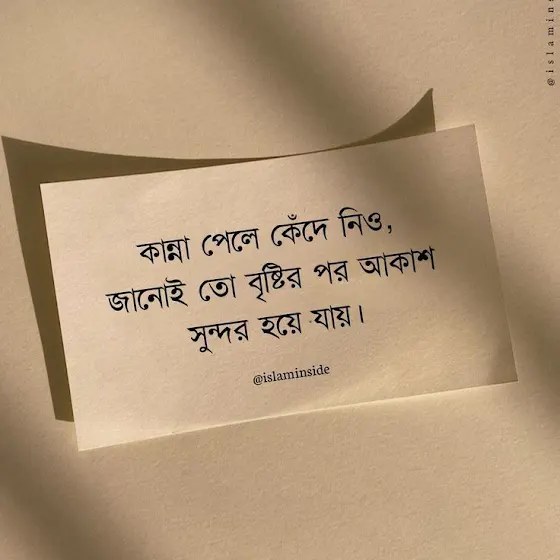 কান্না পেলে কেঁদে নিও,
জানোই তো বৃষ্টির পর আকাশ
সুন্দর হয়ে যায়।
@islaminside